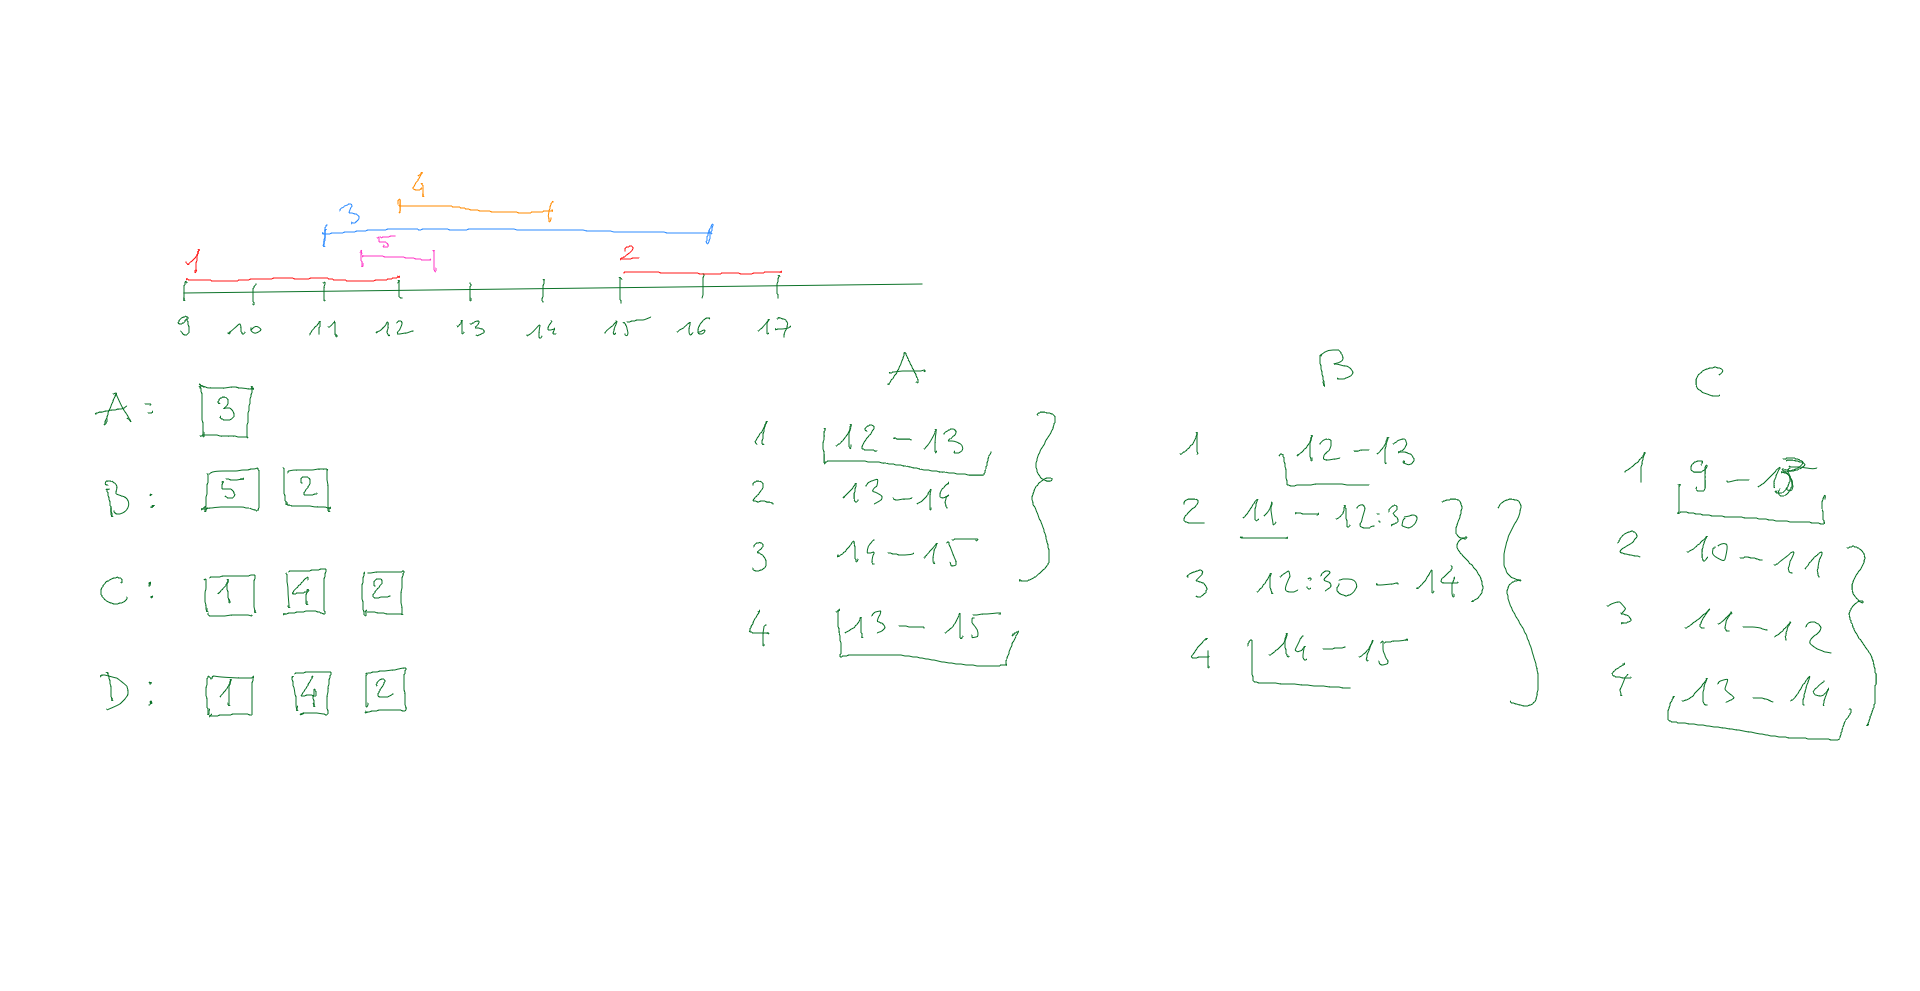 4
3
5
1
2
9 10 11 12 13 14 15 16 17
A: 3
B: 5 2
C: 1 4 2
D: 1 4 2
A
1 12 - 13
2 13 - 14
3 14 - 15
4 13 - 15
B
1 12 - 13
2 11 - 12:30
3 12:30 - 14
4 14 - 15
C
1 9 -
2 10 - 11
3 11 - 12
4 13 - 14